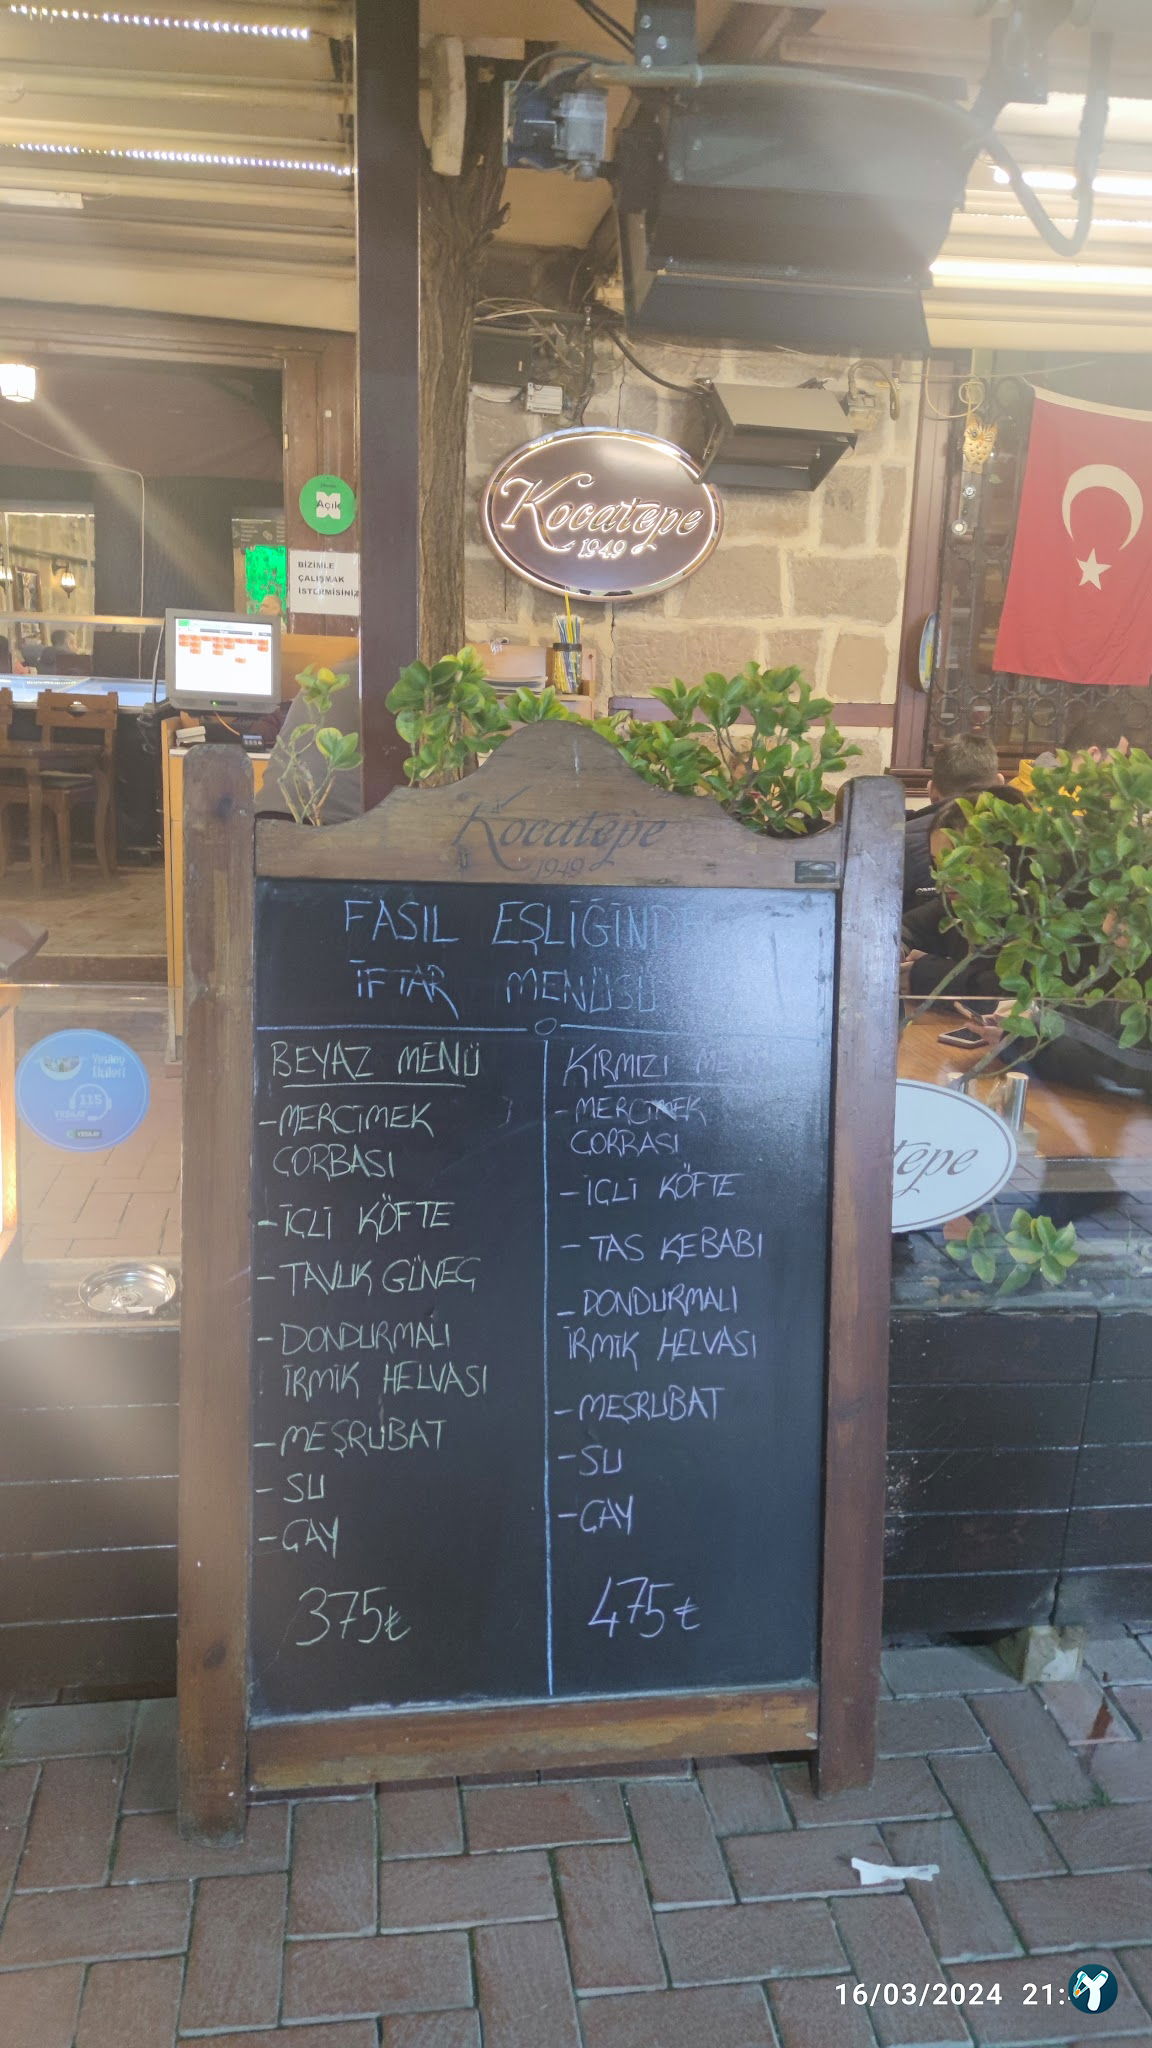 Açık
BİZİMLE
ÇALIŞMAK
İSTERMİSİNİZ
Kocatepe
1949
Kocatepe
1949
FASIL EŞLİĞİNDE
İFTAR MENÜSÜ
BEYAZ MENÜ
-MERCİMEK
ÇORBASI
-İÇLİ KÖFTE
-TAVUK GÜVEÇ
-DONDURMALI
İRMİK HELVASI
-MEŞRUBAT
-SU
-ÇAY
375₺
KIRMIZI
-MERCİMEK
ÇORBASI
-İÇLİ KÖFTE
-TAS KEBABI
-DONDURMALI
İRMİK HELVASI
-MEŞRUBAT
-SU
-ÇAY
475₺
115
YEŞİLAY
tepe
16/03/2024